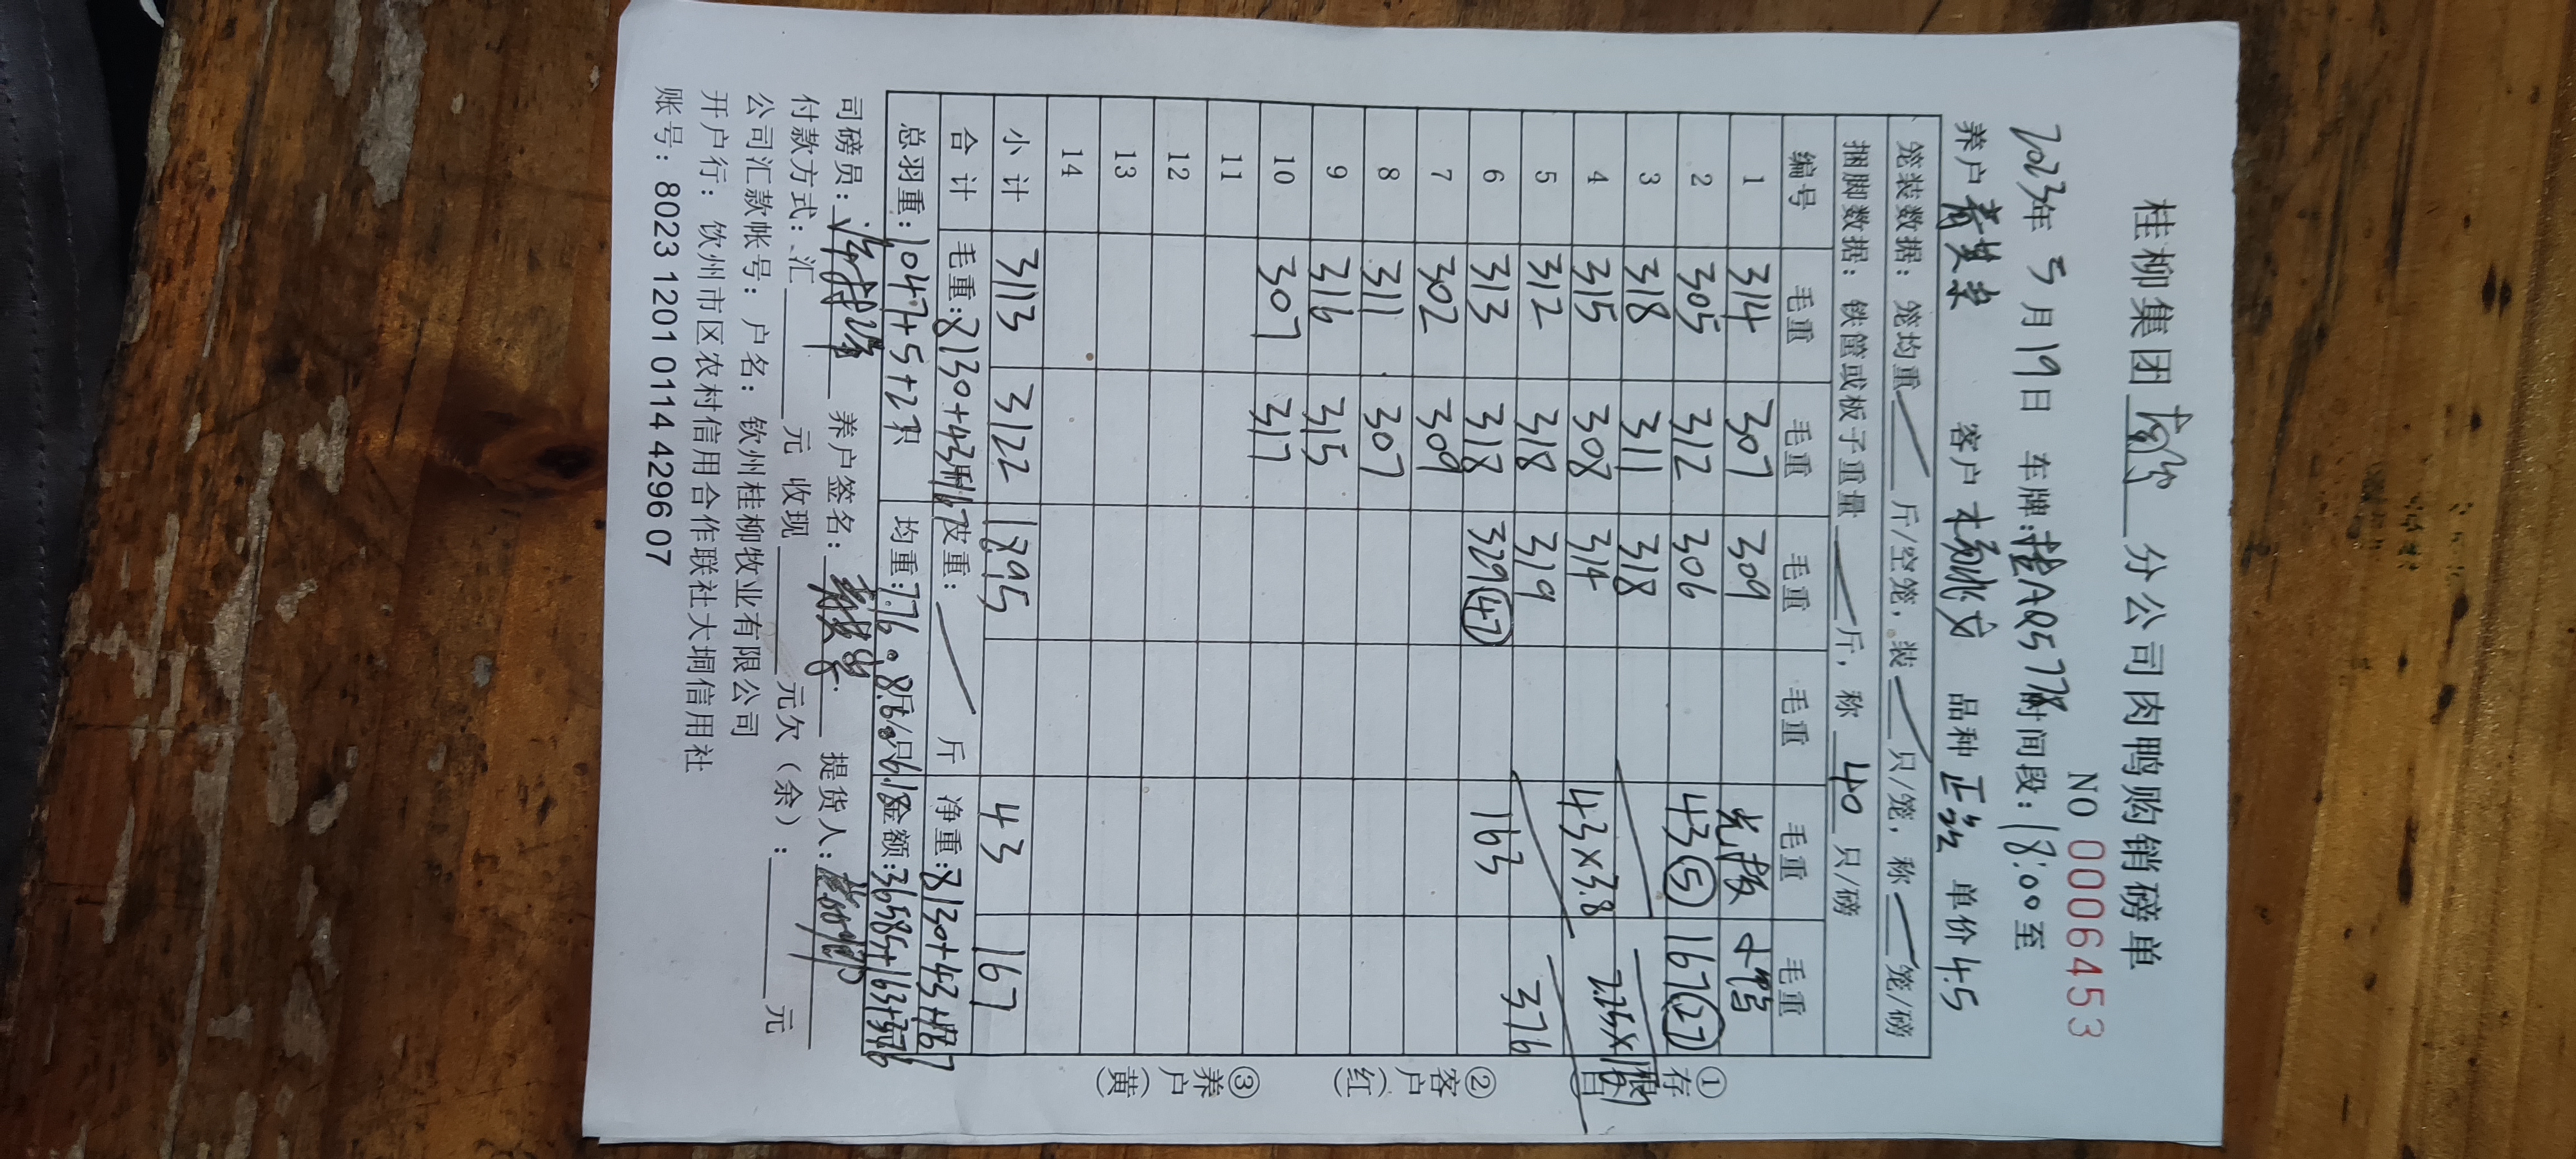 桂柳集团 分公司肉鸭购销磅单
NO 0006453
2023年 5月19日 车牌:桂AQ577 时间段:18:00至
养户 客户 杨 品种 单价 4.5
笼装数据: 笼均重 斤/空笼, 装 只/笼, 称 笼/磅
捆脚数据: 铁筐或板子重量 斤, 称 40 只/磅
编号 毛重 毛重 毛重 毛重 毛重 毛重
1 314 307 309 光板 小鸭
2 305 312 306 43(5) 167(27)
3 318 311 318
4 315 308 314 43×3.8
5 312 318 319 376
6 313 318 329(47) 163
7 302 309
8 311 307
9 316 315
10 307 317
11
12
13
14
小计 3113 3122 1895 43 167
合计 毛重:8130+43+167 皮重: 斤 净重:8130+43+167
总羽重:1047+5+27只 均重:7.76 8.6/只6.18 金额:36585+163+376
司磅员: 养户签名: 提货人:
付款方式: 汇 元 收现 元欠(余): 元
公司汇款帐号: 户名: 钦州桂柳牧业有限公司
开户行: 钦州市区农村信用合作联社大垌信用社
账号: 8023 1201 0114 4296 07
①存根(白)
②客户(红)
③养户(黄)